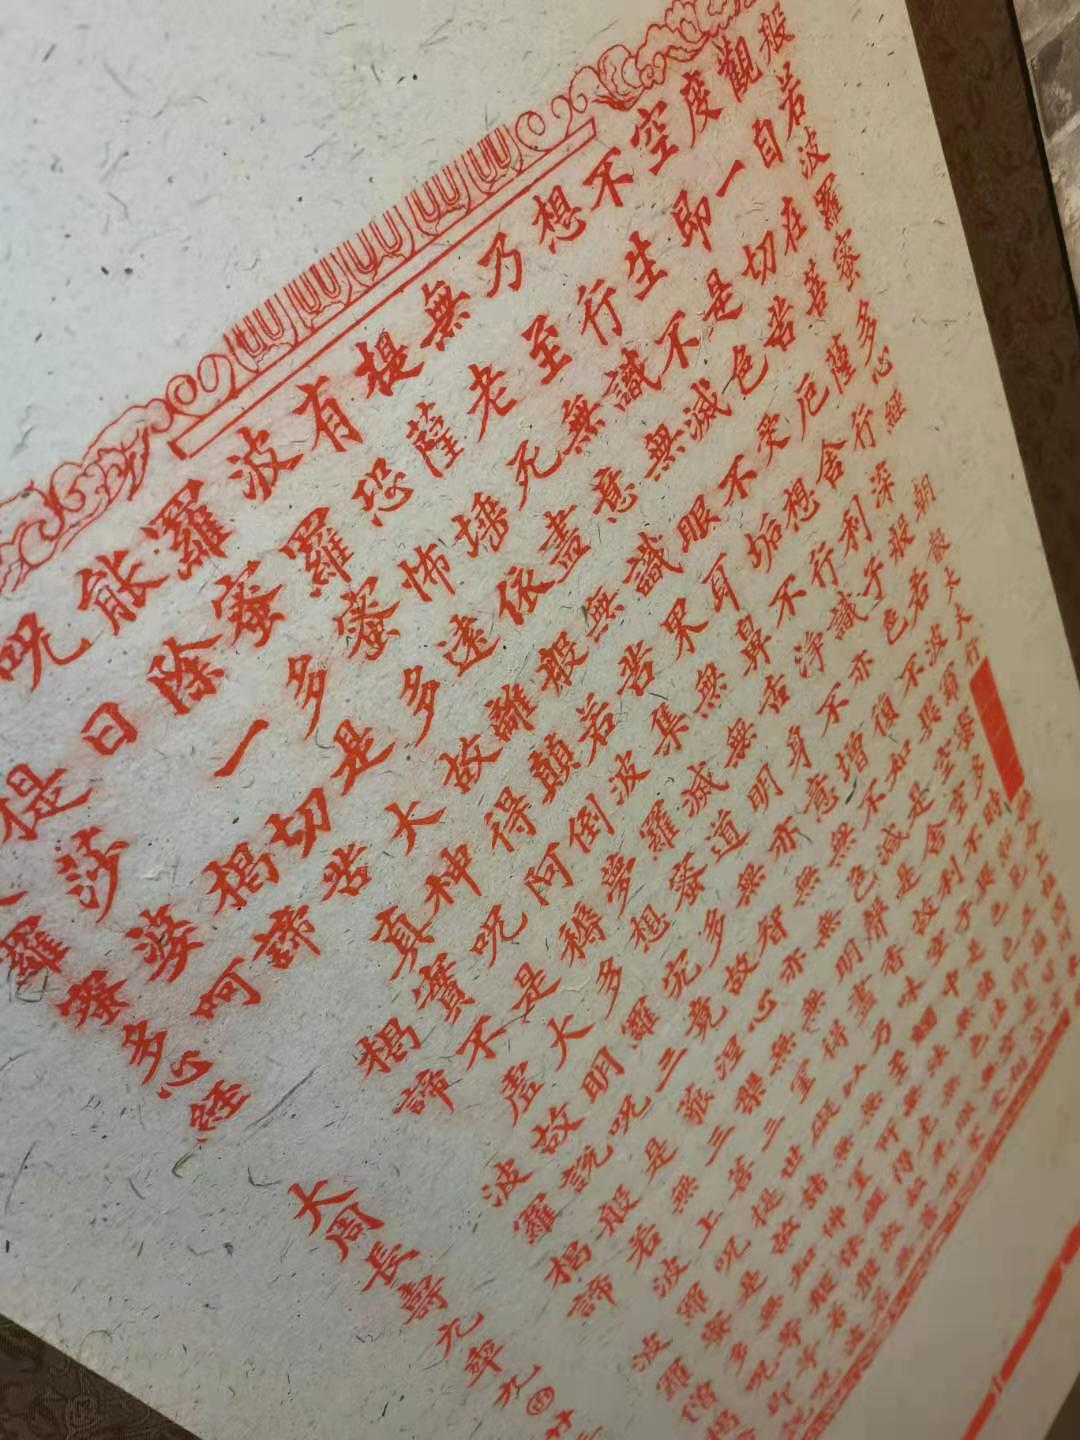 般若波羅蜜多心經
朝散大夫行
觀自在菩薩行深般若波羅蜜多時照見五蘊皆空
度一切苦厄舍利子色不異空空不異色色即是空
空即是色受想行識亦復如是舍利子是諸法空相
不生不滅不垢不淨不增不減是故空中無色無受
想行識無眼耳鼻舌身意無色聲香味觸法無眼界
乃至無意識界無無明亦無無明盡乃至無老死亦
無老死盡無苦集滅道無智亦無得以無所得故菩
提薩埵依般若波羅蜜多故心無罣礙無罣礙故無
有恐怖遠離顛倒夢想究竟涅槃三世諸佛依般若
波羅蜜多故得阿耨多羅三藐三菩提故知般若波
羅蜜多是大神呪是大明呪是無上呪是無等等呪
能除一切苦真實不虛故說般若波羅蜜多呪即說
呪曰 揭諦揭諦 波羅揭諦 波羅僧揭
提莎婆呵
羅蜜多心經
大周長壽九年九